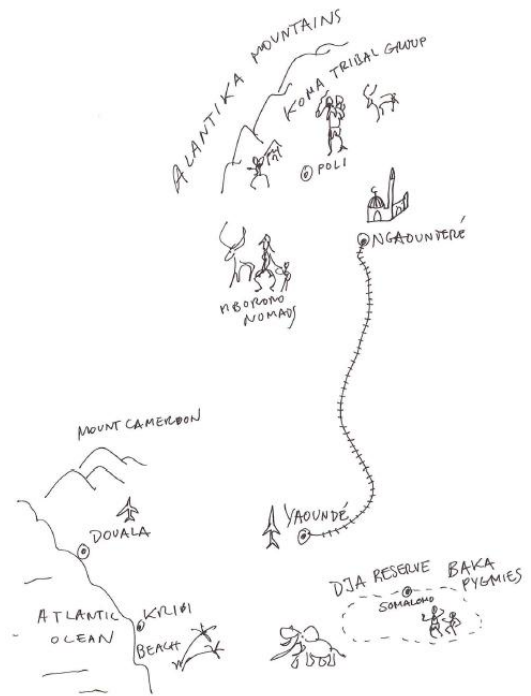 ALANTIKA MOUNTAINS
KOMA TRIBAL GROUP
POLI
NGAOUNDERÉ
MBORORO
NOMADS
MOUNT CAMEROON
DOUALA
YAOUNDÉ
DJA RESERVE
BAKA
PYGMIES
SOMALOMO
ATLANTIC
OCEAN
KRIBI
BEACH